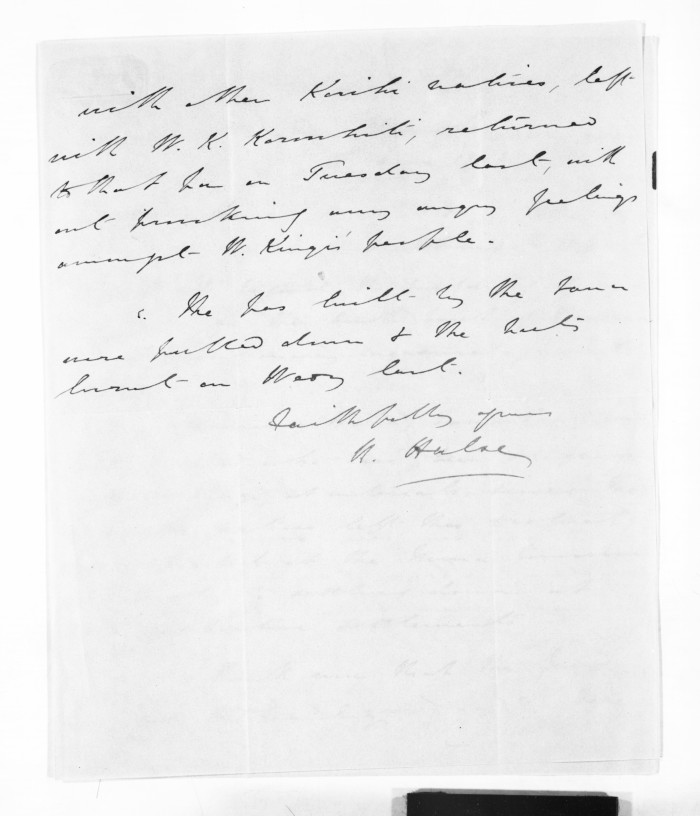 with other Karibi natives, left
with W. K. Korowhiti, returned
to that pa on Tuesday last, with
out provoking any angry feelings
amongst W. Kingi's people.
The pas built by the
were pulled down & the huts
burnt on Wedy last.
Faithfully yours
H. Halse